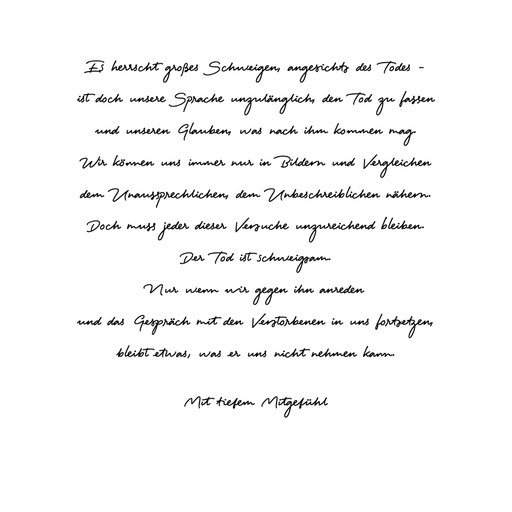 Es herrscht großes Schweigen, angesichts des Todes -
ist doch unsere Sprache unzulänglich, den Tod zu fassen
und unseren Glauben, was nach ihm kommen mag
Wir können uns immer nur in Bildern und Vergleichen
dem Unaussprechlichen, dem Unbeschreiblichen nähern.
Doch muss jeder dieser Versuche unzureichend bleiben.
Der Tod ist schweigsam.
Nur wenn wir gegen ihn anreden
und das Gespräch mit den Verstorbenen in uns fortsetzen,
bleibt etwas, was er uns nicht nehmen kann.
Mit tiefem Mitgefühl